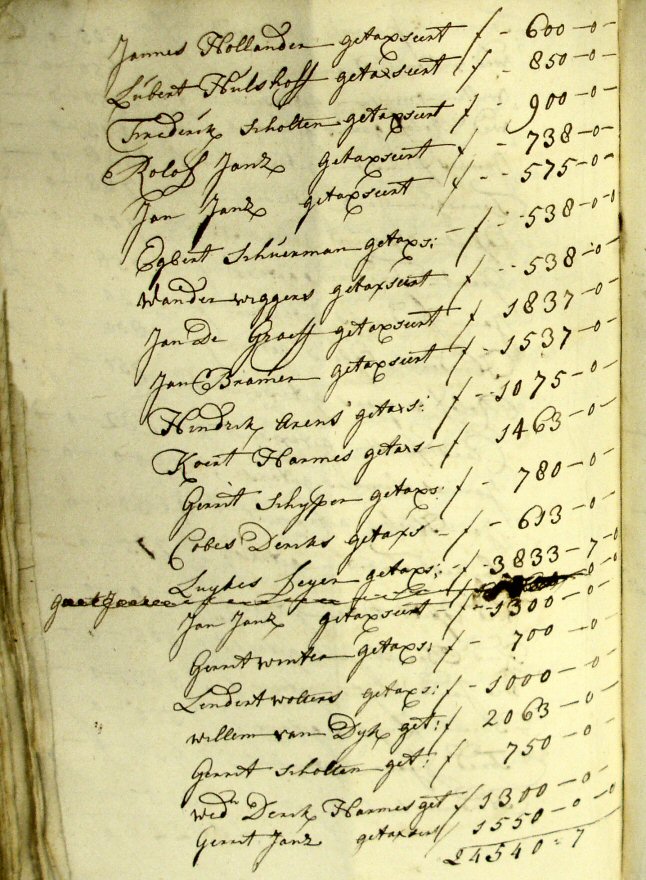 Jannes Hollander getaxseert f - 600-0-
Lubert Hulshoff getaxseert f - 850-0-
Frederick Scholten getaxseert f - 900-0-
Rolof Janz getaxseert f - 738-0-
Jan Janz getaxseert f - 575-0-
Egbert Schuerman getaxs: f - 538-0-0
Wander wiggers getaxseert f - 538-0-
Jan De Graeff getaxseert f 1837-0-
Jan Bramer getaxseert f - 1537-0-
Hindrik Arens getaxs: f - 1075-0-
Koert Harmes getaxs - f 1463-0-
Gerrit Schyper getaxs: f - 780-0-
Cobes Dercks getaxs - f - 613-0-
Luykes Beyer getaxs: f - 3833-7-0
Jan Janz getaxseert f - 1300-0-0
Gerrit winter getaxs: f - 700-0-
Lendert wolters getaxs: f - 1000-0-
willem van Dyk get: f 2063-0-
Gerrit Scholten get: f 750-0-
wedn Derck Harmes get f 1300-0-
Gerrit Janz getaxeert f 1550-0-0
24540-7